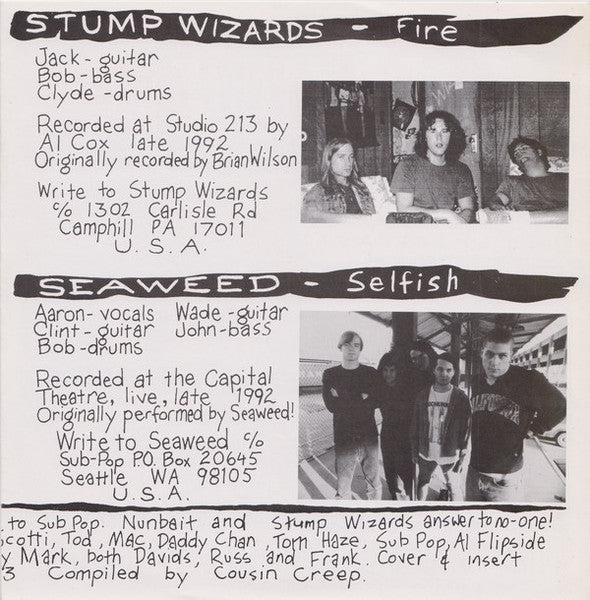 STUMP WIZARDS - Fire
Jack - guitar
Bob - bass
Clyde - drums
Recorded at Studio 213 by
Al Cox late 1992
Originally recorded by Brian Wilson
Write to Stump Wizards
c/o 1302 Carlisle Rd
Camphill PA 17011
U.S.A.
SEAWEED - Selfish
Aaron - vocals Wade - guitar
Clint - guitar John - bass
Bob - drums
Recorded at the Capital
Theatre, live, late 1992
Originally performed by Seaweed!
Write to Seaweed c/o
Sub-Pop P.O. Box 20645
Seattle WA 98105
U.S.A.
to Sub Pop. Nunbait and Stump Wizards answer to no-one!
cotti, Tod, Mac, Daddy Chan, Tom Haze, Sub Pop, Al Flipside
y Mark, both Davids, Russ and Frank. Cover & insert
3 Compiled by Cousin Creep.